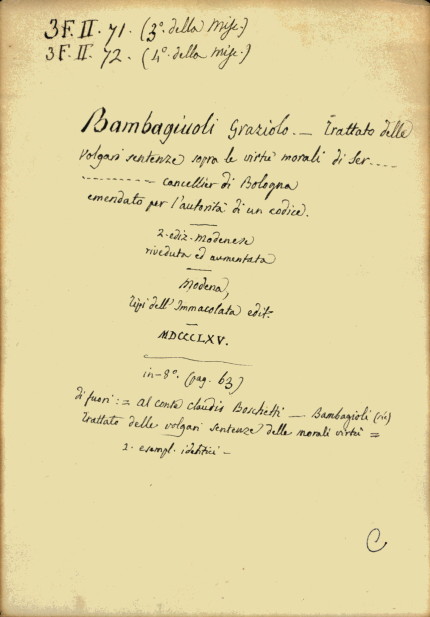 3F. II. 71. (3º. della Misc.)
3F. II. 72. (4º. della Misc.)
Bambagiuoli Graziolo. — Trattato delle
volgari sentenze sopra le virtù morali di Ser....
--------- cancellier di Bologna
emendato per l'autorità di un codice.
2. ediz. Modenese
riveduta ed aumentata
Modena,
tipi dell'Immacolata edit:
MDCCCLXV.
in-8º. (pag. 63)
di fuori: = al conte Claudio Boschetti — Bambagioli (sic)
Trattato delle volgari sentenze delle morali virtù =
2. esempl. identici —
C